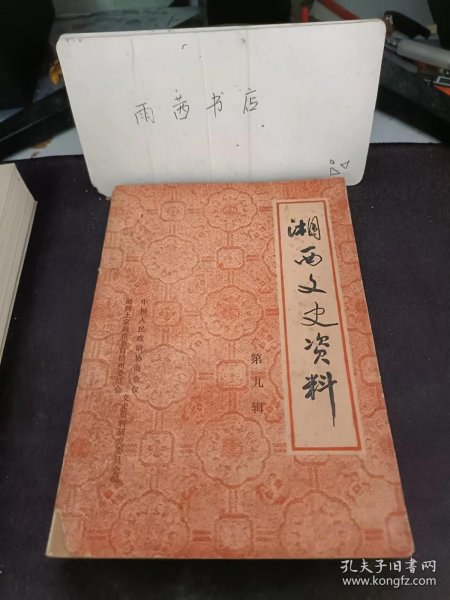 雨茜书店
湘西文史资料
第九辑
中国人民政治协商会议
湘西土家族苗族自治州委员会
文史资料研究委员会编
孔夫子旧书网
www.kongfz.com